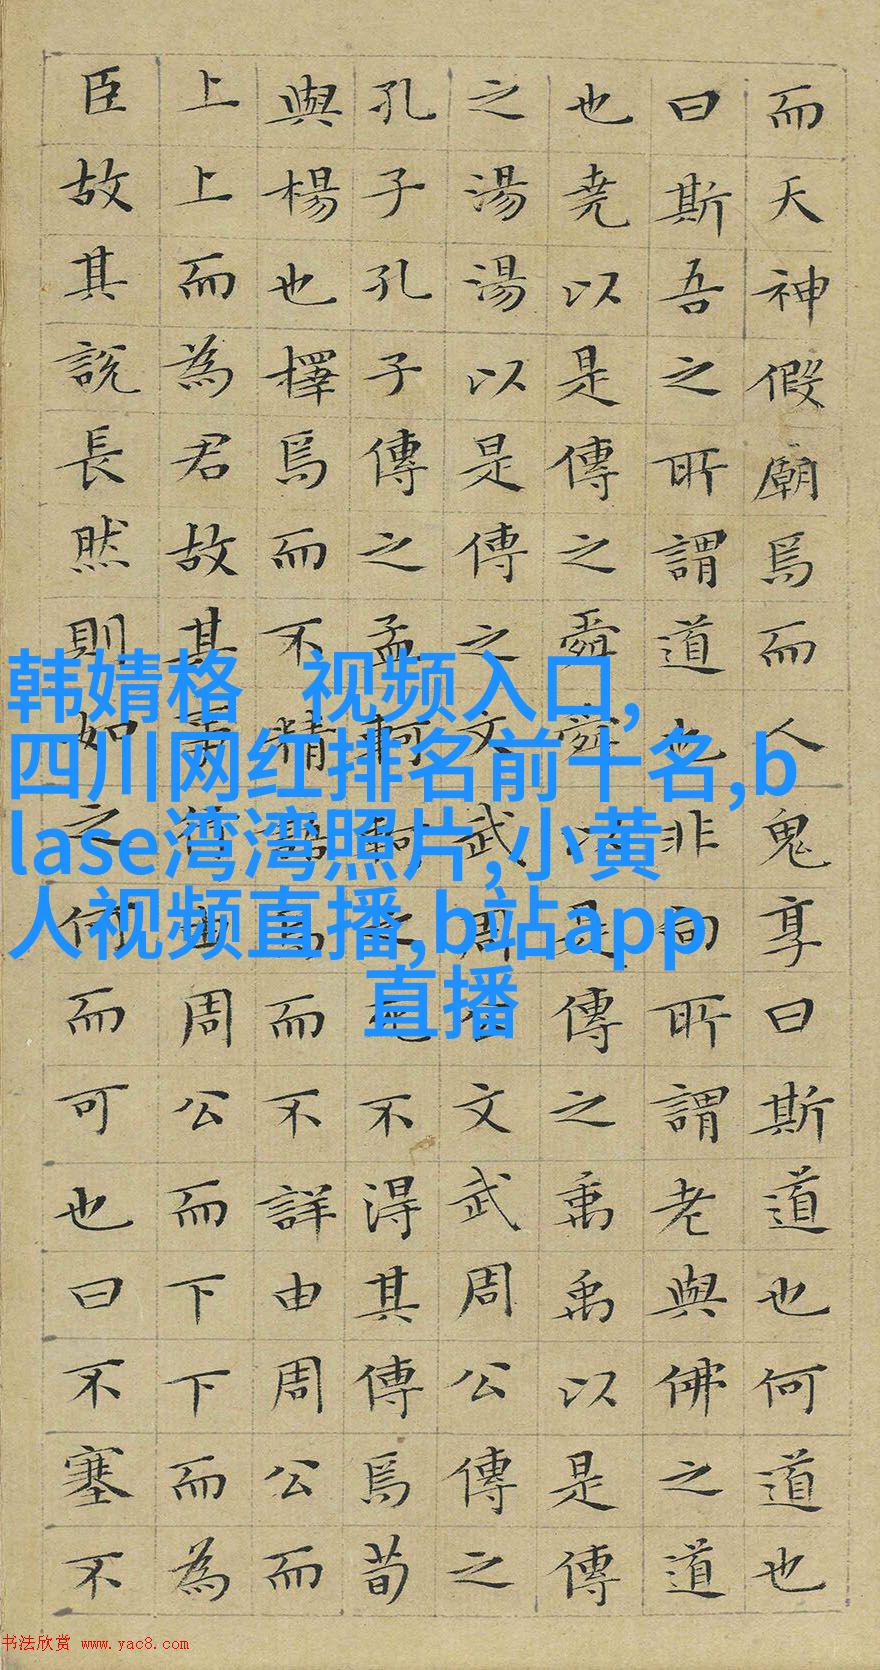 而天神假廟焉而人鬼享曰斯道也何道也
曰斯吾之所謂道也非向所謂老與佛之道
也堯以是傳之舜舜以是傳之禹禹以是傳
之湯湯以是傳之文武周公文武周公傳之
孔子孔子傳之孟軻軻之死不得其傳焉荀
與楊也擇焉而不精語焉而不詳由周公而
上上而為君故其事由周公而下下而為
臣故其說長然則如之何而可也曰不塞不
韩婧格 视频入口,
四川网红排名前十名,b
lase湾湾照片,小黄
人视频直播,b站app
直播
书法欣赏 www.yac8.com